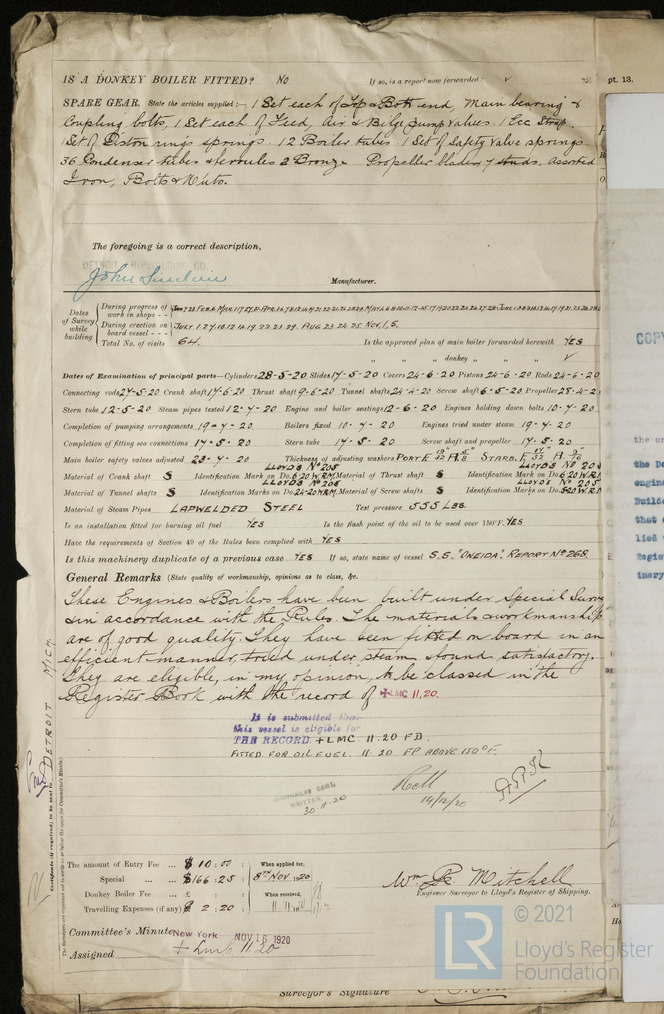 IS A DONKEY BOILER FITTED? No If so, is a report now forwarded? ✓
pt. 13.
SPARE GEAR. State the articles supplied:— 1 Set each of Top & Bott end, Main bearing &
Coupling bolts, 1 Set each of Feed, Air & Bilge pump valves. 1 Ecc Strap.
1 Set of Piston rings springs. 12 Boiler tubes 1 Set of Safety Valve springs
36 Condenser tubes & ferrules 2 Bronze Propeller blades 7 studs, assorted
Iron, Bolts & Nuts.
The foregoing is a correct description,
John Sinclair Manufacturer.
Dates of Survey while building
During progress of work in shops - -
During erection on board vessel - - - July 1. 7. 10. 12. 14. 19. 22. 23. 29. Aug 23. 24. 25 Nov. 1. 5.
Total No. of visits 64. Is the approved plan of main boiler forwarded herewith YES
" " " donkey " " ✓
Dates of Examination of principal parts—Cylinders 28-5-20 Slides 17-5-20 Covers 24-6-20 Pistons 24-6-20 Rods 24-6-20
Connecting rods 27-5-20 Crank shaft 17-6-20 Thrust shaft 9-6-20 Tunnel shafts 24-4-20 Screw shaft 6-5-20 Propeller 28-4-2
Stern tube 12-5-20 Steam pipes tested 12-7-20 Engine and boiler seatings 12-6-20 Engines holding down bolts 10-7-20
Completion of pumping arrangements 19-7-20 Boilers fixed 10-7-20 Engines tried under steam 19-7-20
Completion of fitting sea connections 17-5-20 Stern tube 17-5-20 Screw shaft and propeller 17-5-20
Main boiler safety valves adjusted 23-7-20 Thickness of adjusting washers PORT F A STARB. F A
LLOYD'S No 205 LLOYD'S No 20
Material of Crank shaft S Identification Mark on Do. 6.20 W.R.M. Material of Thrust shaft S Identification Mark on Do. 6.20 W.R.
LLOYD'S No 205 LLOYD'S No 205
Material of Tunnel shafts S Identification Marks on Do. 24-20 W.R.M. Material of Screw shafts S Identification Marks on Do. 5-20 W.R.
Material of Steam Pipes LAPWELDED STEEL Test pressure 555 LBS.
Is an installation fitted for burning oil fuel YES Is the flash point of the oil to be used over 150°F. YES
Have the requirements of Section 49 of the Rules been complied with YES
Is this machinery duplicate of a previous case YES If so, state name of vessel S.S. "ONEIDA". REPORT No 268.
General Remarks (State quality of workmanship, opinions as to class, &c.
These Engines & Boilers have been built under Special Surve
& in accordance with the Rules. The materials & workmanship
are of good quality. They have been fitted on board in an
efficient manner, tried under steam & found satisfactory.
They are eligible, in my opinion, to be classed in the
Register Book with the record of + LMC 11.20.
It is submitted that
this vessel is eligible for
THE RECORD + LMC. 11.20 FD.
FITTED FOR OIL FUEL. 11.20. FP ABOVE 150°F.
WRITTEN
30.11.20
14/12/20
DETROIT MICH.
The amount of Entry Fee ... $ 10 : 00 : When applied for,
Special ... ... $ 166 : 25 : 8TH NOV 1920
Donkey Boiler Fee ... When received,
Travelling Expenses (if any) $ 2 . 20 :
Wm R. Mitchell
Engineer Surveyor to Lloyd's Register of Shipping.
Committee's Minute New York NOV 16 1920
Assigned + Lmc 11.20
Surveyor's Signature
COPY
the un
the De
engine
Builde
that
lied
Regis
inary
LR
© 2021
Lloyd's Register
Foundation